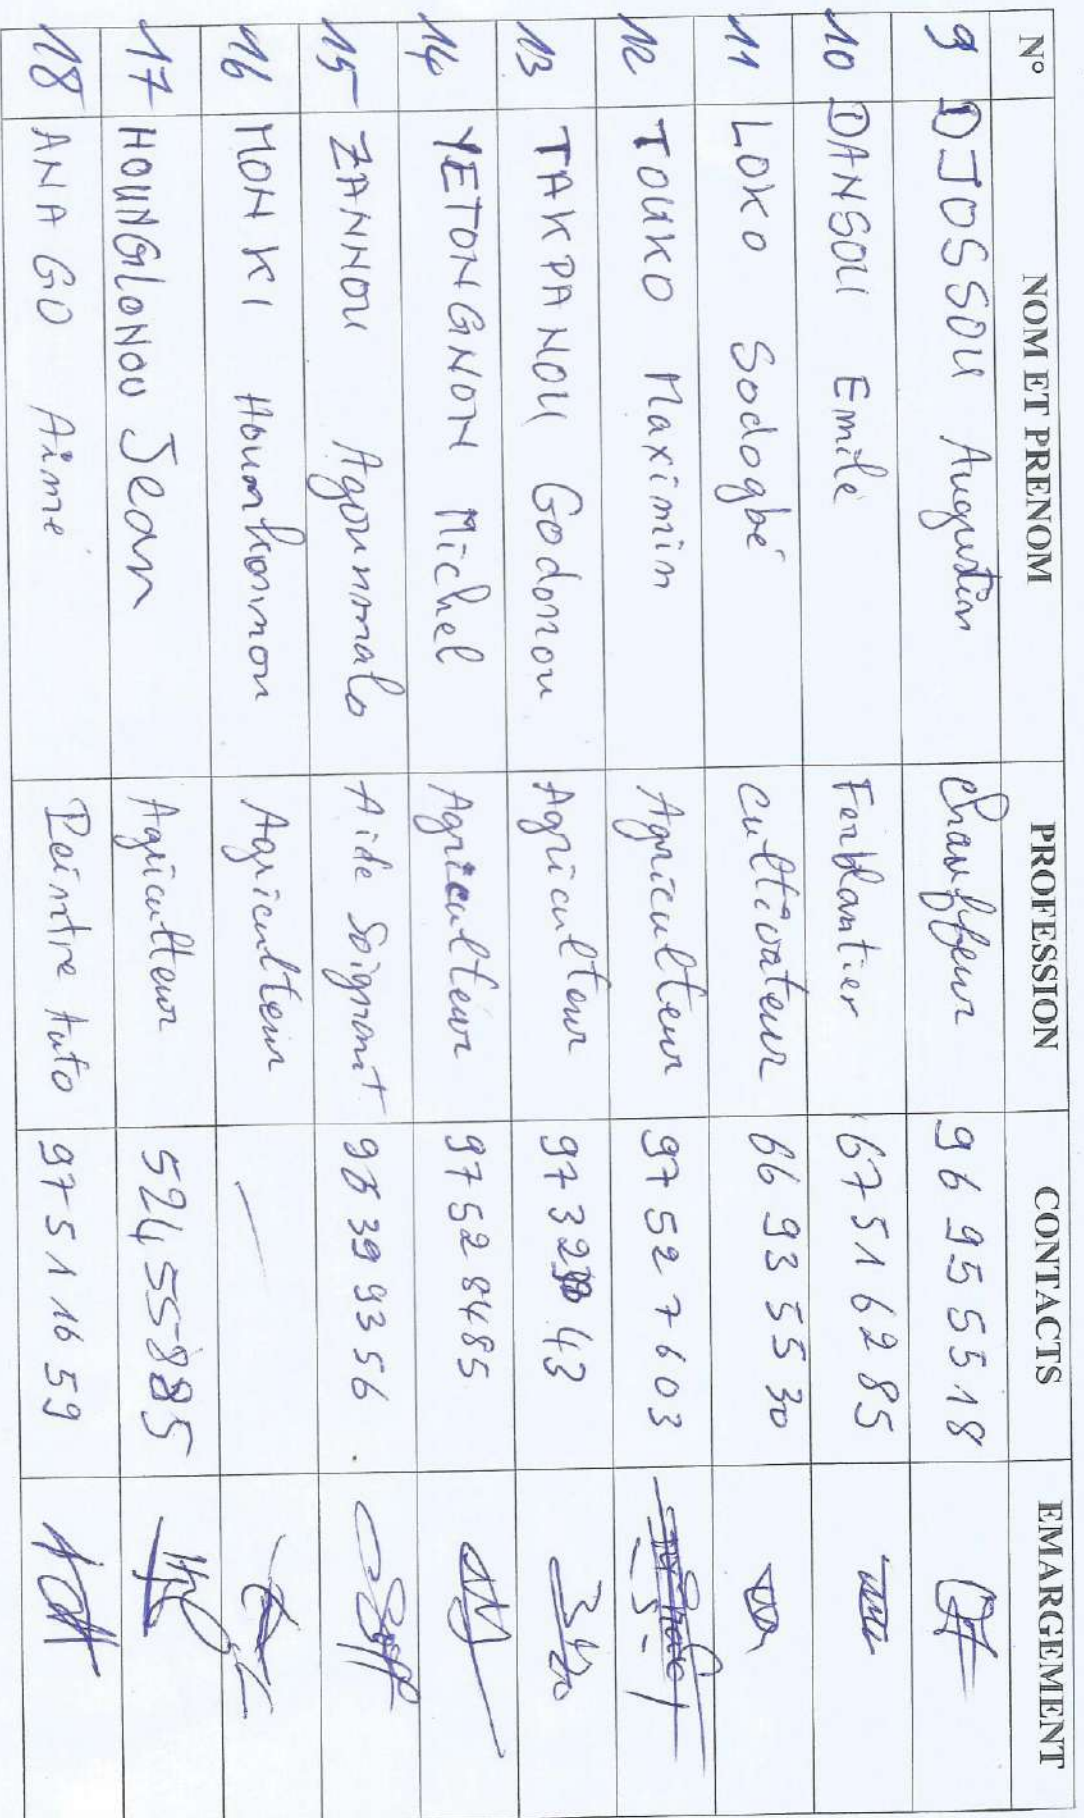 N° NOM ET PRENOM PROFESSION CONTACTS EMARGEMENT
9 DJOSSOU Augustin Chauffeur 96 95 55 18
10 DANSOU Emile Ferblantier 67 51 62 85
11 LOKO Sodogbé Cultivateur 66 93 55 30
12 TOUKO Maximin Agriculteur 97 52 76 03
13 TAKPANOU Godonou Agriculteur 97 32 43
14 YETONGNON Michel Agriculteur 97 52 84 85
15 ZANNOU Agounmalo Aide Soignant 39 93 56
16 MONKI Hounkonnou Agriculteur
17 HOUNGLONOU Jean Agriculteur 524 55 885
18 ANAGO Aimé Peintre Auto 97 51 16 59